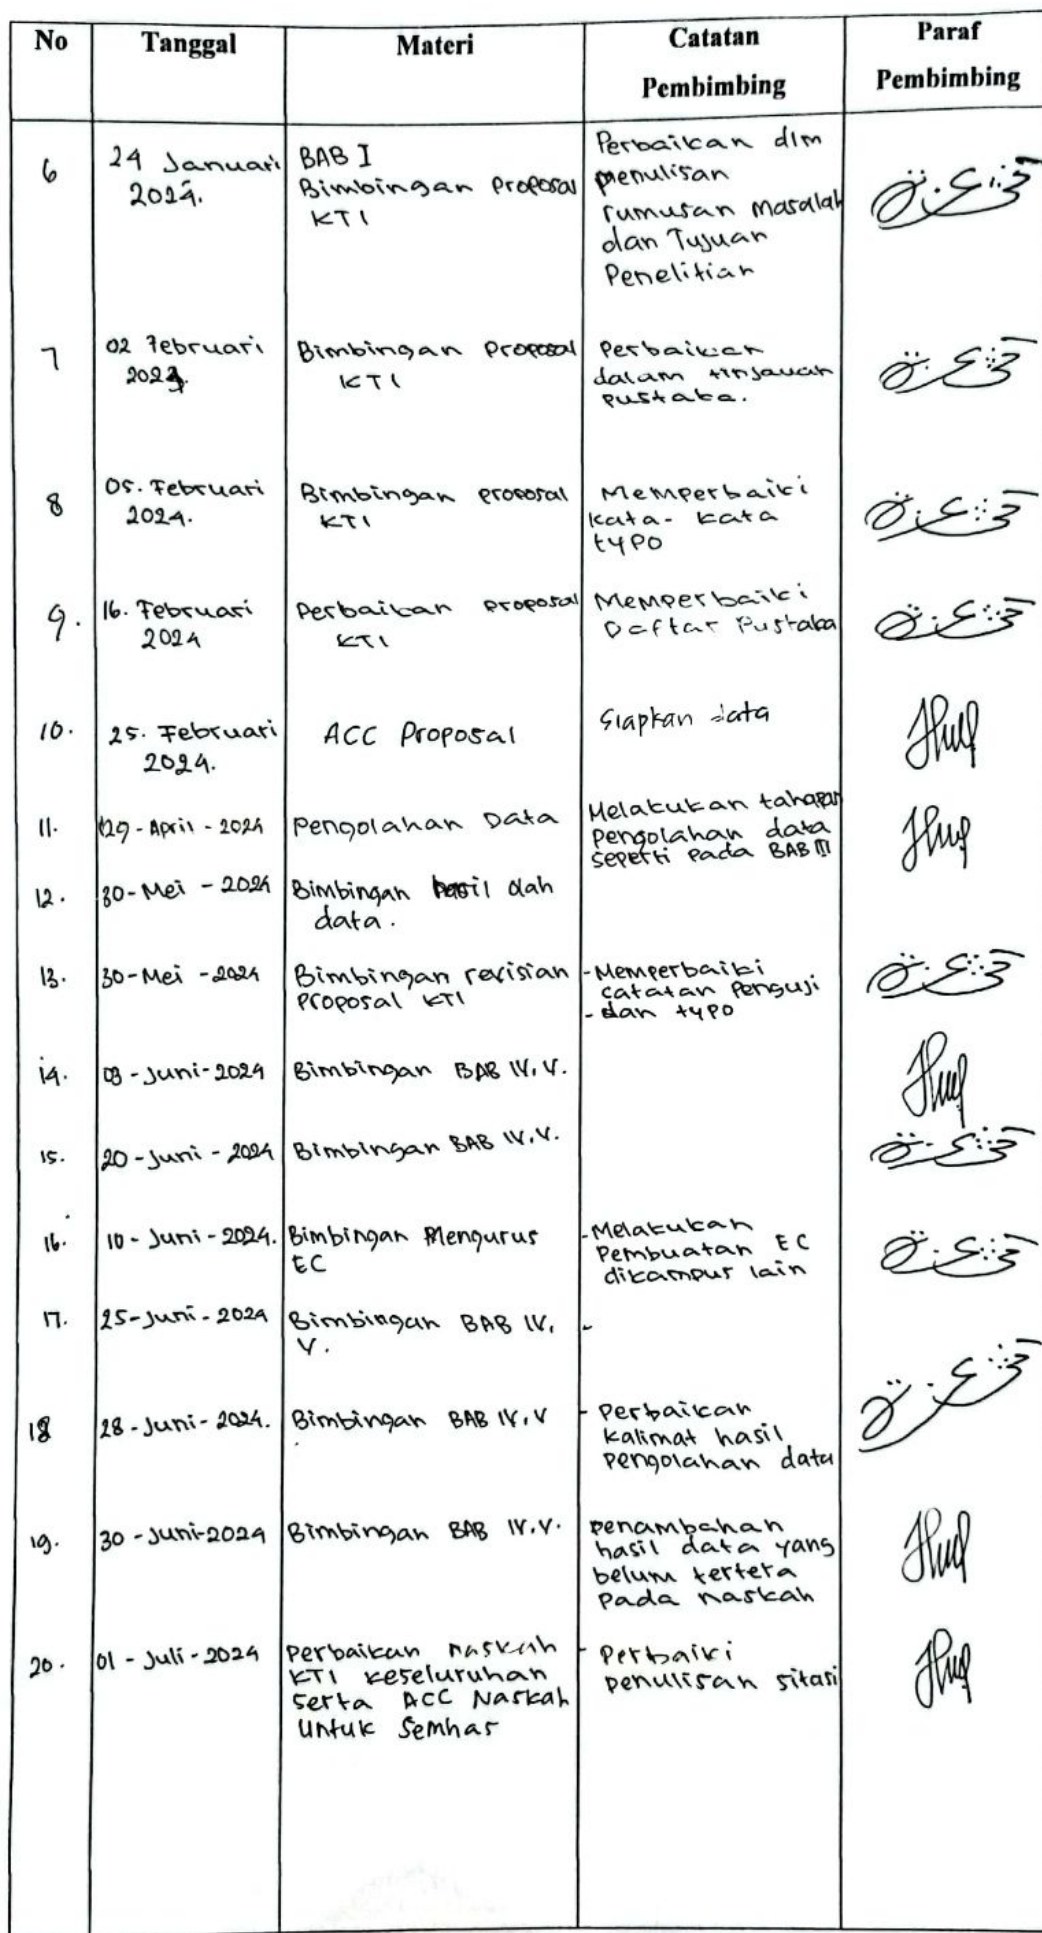 No Tanggal Materi Catatan Pembimbing Paraf Pembimbing
6 24 Januari 2024. BAB I Bimbingan Proposal KTI Perbaikan dlm penulisan rumusan masalah dan Tujuan Penelitian
7 02 Februari 2024. Bimbingan Proposal KTI Perbaikan dalam tinjauan pustaka.
8 05. Februari 2024. Bimbingan proposal KTI Memperbaiki kata-kata typo
9. 16. Februari 2024 Perbaikan proposal KTI Memperbaiki Daftar Pustaka
10. 25. Februari 2024. ACC Proposal Siapkan data
11. 29-April-2024 Pengolahan Data Melakukan tahapan pengolahan data seperti pada BAB III
12. 30-Mei-2024 Bimbingan hasil olah data.
13. 30-Mei-2024 Bimbingan revisian proposal KTI -Memperbaiki catatan Penguji -dan typo
14. 03-Juni-2024 Bimbingan BAB IV.V.
15. 20-Juni-2024 Bimbingan BAB IV.V.
16. 10-Juni-2024. Bimbingan Mengurus EC -Melakukan Pembuatan EC dikampus lain
17. 25-Juni-2024 Bimbingan BAB IV, V. -
18 28-Juni-2024. Bimbingan BAB IV,V - Perbaikan kalimat hasil pengolahan data
19. 30-Juni-2024 Bimbingan BAB IV.V. penambahan hasil data yang belum tertera pada naskah
20. 01-Juli-2024 Perbaikan naskah KTI keseluruhan serta ACC Naskah Untuk Semhas - Perbaiki penulisan sitasi